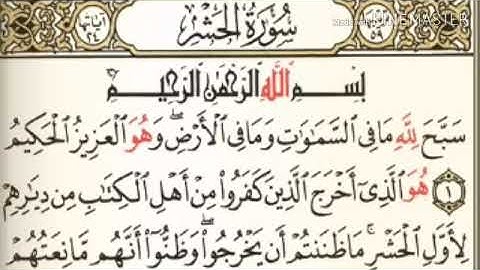 سُورَةُ الْحَشْرِ
آياتها ٢٤
٥٩
KINEMASTER
بِسْمِ اللَّهِ الرَّحْمَٰنِ الرَّحِيمِ
سَبَّحَ لِلَّهِ مَا فِي السَّمَٰوَٰتِ وَمَا فِي الْأَرْضِ ۖ وَهُوَ الْعَزِيزُ الْحَكِيمُ
١ هُوَ الَّذِي أَخْرَجَ الَّذِينَ كَفَرُوا مِنْ أَهْلِ الْكِتَٰبِ مِن دِيَٰرِهِمْ
لِأَوَّلِ الْحَشْرِ ۚ مَا ظَنَنتُمْ أَن يَخْرُجُوا ۖ وَظَنُّوا أَنَّهُم مَّانِعَتُهُمْ